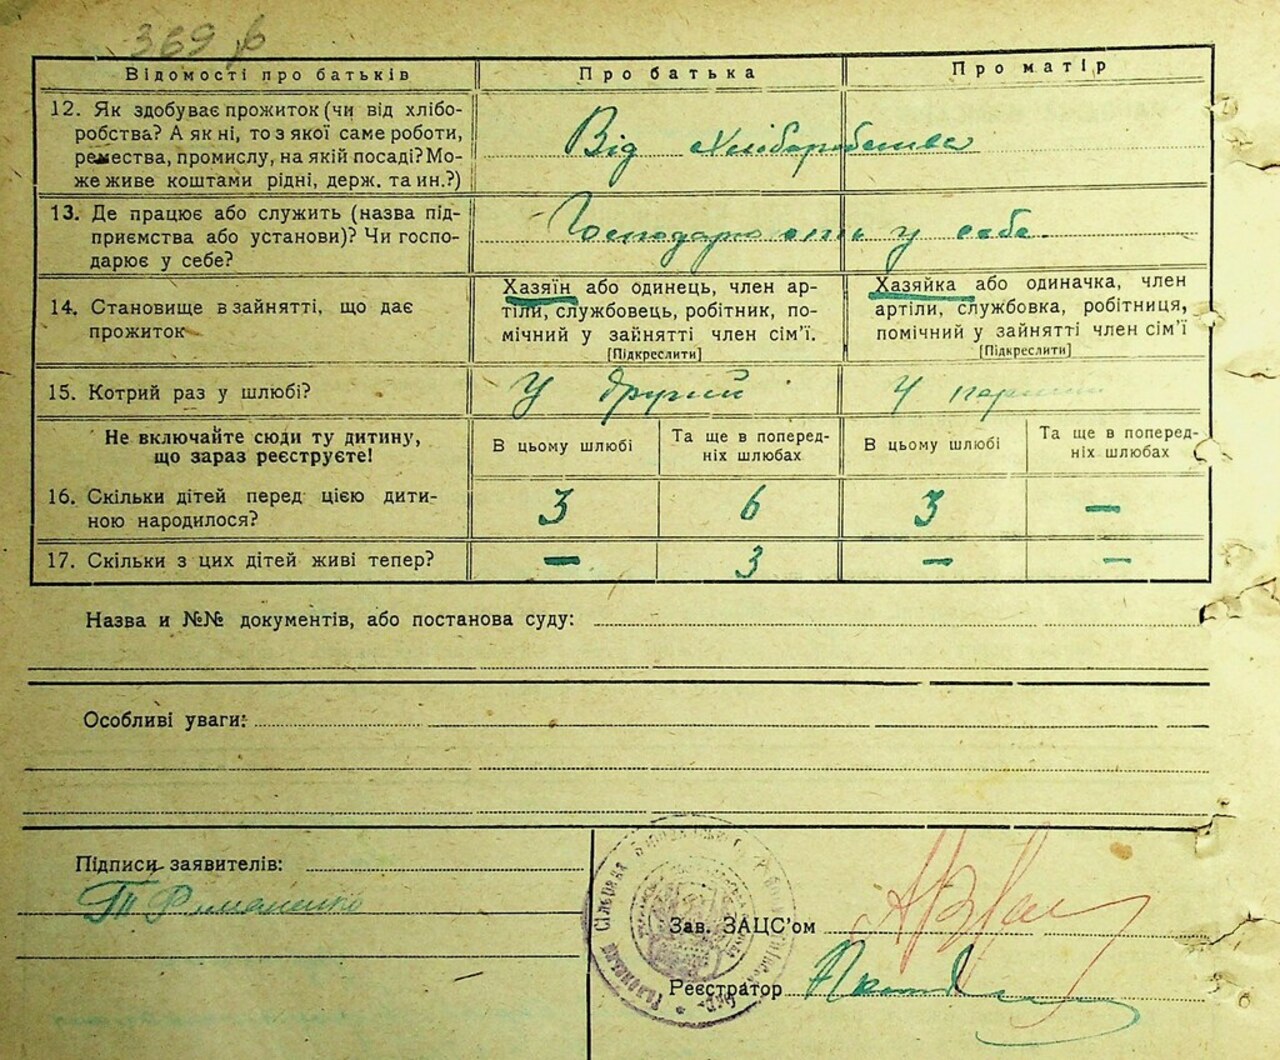 369
Відомості про батьків
Про батька
Про матір
12. Як здобуває прожиток (чи від хлібо-
робства? А як ні, то з якої саме роботи,
ремества, промислу, на якій посаді? Мо-
же живе коштами рідні, держ. та ин.?)
Від хліборобства
13. Де працює або служить (назва під-
приємства або установи)? Чи госпо-
дарює у себе?
у себе
14. Становище в зайнятті, що дає
прожиток
Хазяїн або одинець, член ар-
тіли, службовець, робітник, по-
мічний у зайнятті член сім'ї.
[Підкреслити]
Хазяйка або одиначка, член
артіли, службовка, робітниця,
помічний у зайнятті член сім'ї
[Підкреслити]
15. Котрий раз у шлюбі?
У другий
У первий
Не включайте сюди ту дитину,
що зараз реєструєте!
В цьому шлюбі
Та ще в поперед-
ніх шлюбах
В цьому шлюбі
Та ще в поперед-
ніх шлюбах
16. Скільки дітей перед цією дити-
ною народилося?
3
6
3
—
17. Скільки з цих дітей живі тепер?
—
3
—
—
Назва и №№ документів, або постанова суду:
Особливі уваги:
Підписи заявителів:
Зав. ЗАЦС'ом
Реєстратор